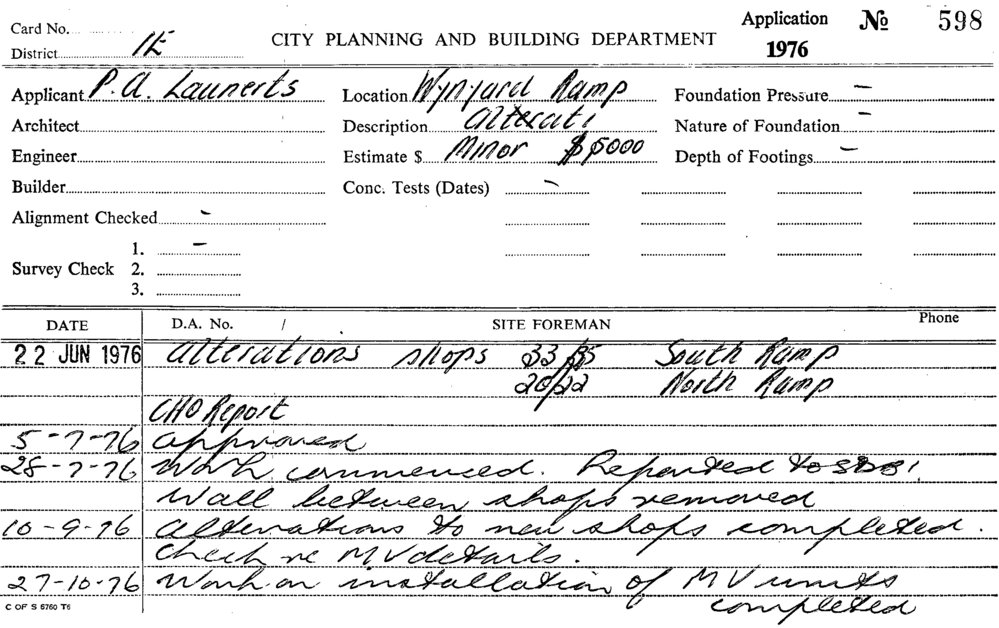 Card No.
Application No 598
District IE
CITY PLANNING AND BUILDING DEPARTMENT
1976
Applicant P.A. Launerts
Location Wynyard Ramp
Foundation Pressure –
Architect
Description Alterati
Nature of Foundation –
Engineer
Estimate $ Minor $5000
Depth of Footings –
Builder
Conc. Tests (Dates) –
Alignment Checked –
1. –
Survey Check 2.
3.
DATE D.A. No. / SITE FOREMAN Phone
22 JUN 1976 Alterations shops 33/35 South Ramp
20/22 North Ramp
CHO Report
5-7-76 approved
28-7-76 Work commenced. Reported to
Wall between shops removed
10-9-76 Alterations to new shops completed.
Check re MV details.
27-10-76 Work on installation of MV units
completed
C OF S 5760 T6